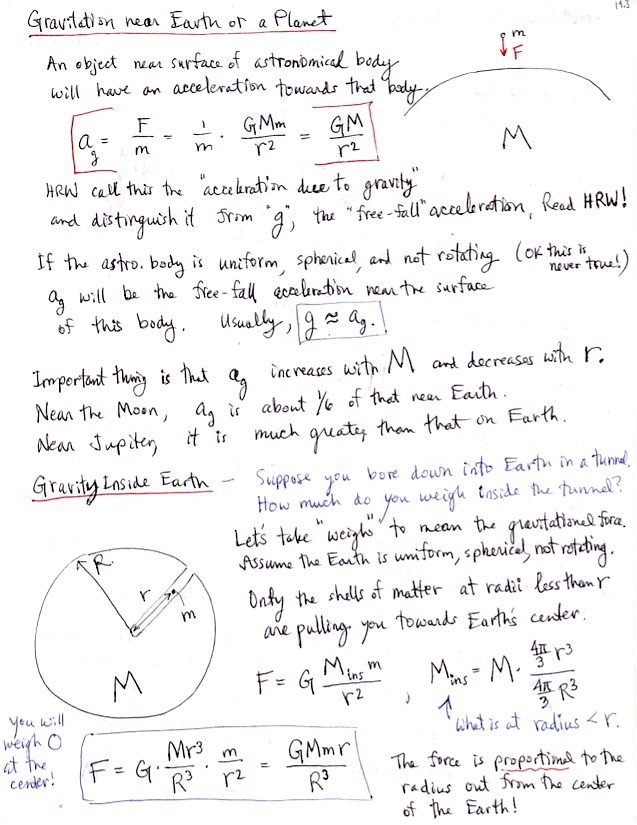 14.3
Gravitation near Earth or a Planet
An object near surface of astronomical body
will have an acceleration towards that body.
m
F
M
a_g = F/m = 1/m · GMm/r² = GM/r²
HRW call this the "acceleration due to gravity"
and distinguish it from "g", the "free-fall" acceleration, Read HRW!
If the astro. body is uniform, spherical, and not rotating (OK this is never true!)
a_g will be the free-fall acceleration near the surface
of this body. Usually, g ≈ a_g.
Important thing is that a_g increases with M and decreases with r.
Near the Moon, a_g is about 1/6 of that near Earth.
Near Jupiter, it is much greater than that on Earth.
Gravity Inside Earth – Suppose you bore down into Earth in a tunnel.
How much do you weigh inside the tunnel?
Let's take "weigh" to mean the gravitational force.
Assume the Earth is uniform, spherical, not rotating.
Only the shells of matter at radii less than r
are pulling you towards Earth's center.
R
r
m
M
F = G M_ins m / r² , M_ins = M · (4π/3 r³)/(4π/3 R³)
what is at radius < r.
you will
weigh 0
at the
center!
F = G · Mr³/R³ · m/r² = GMmr/R³
The force is proportional to the
radius out from the center
of the Earth!